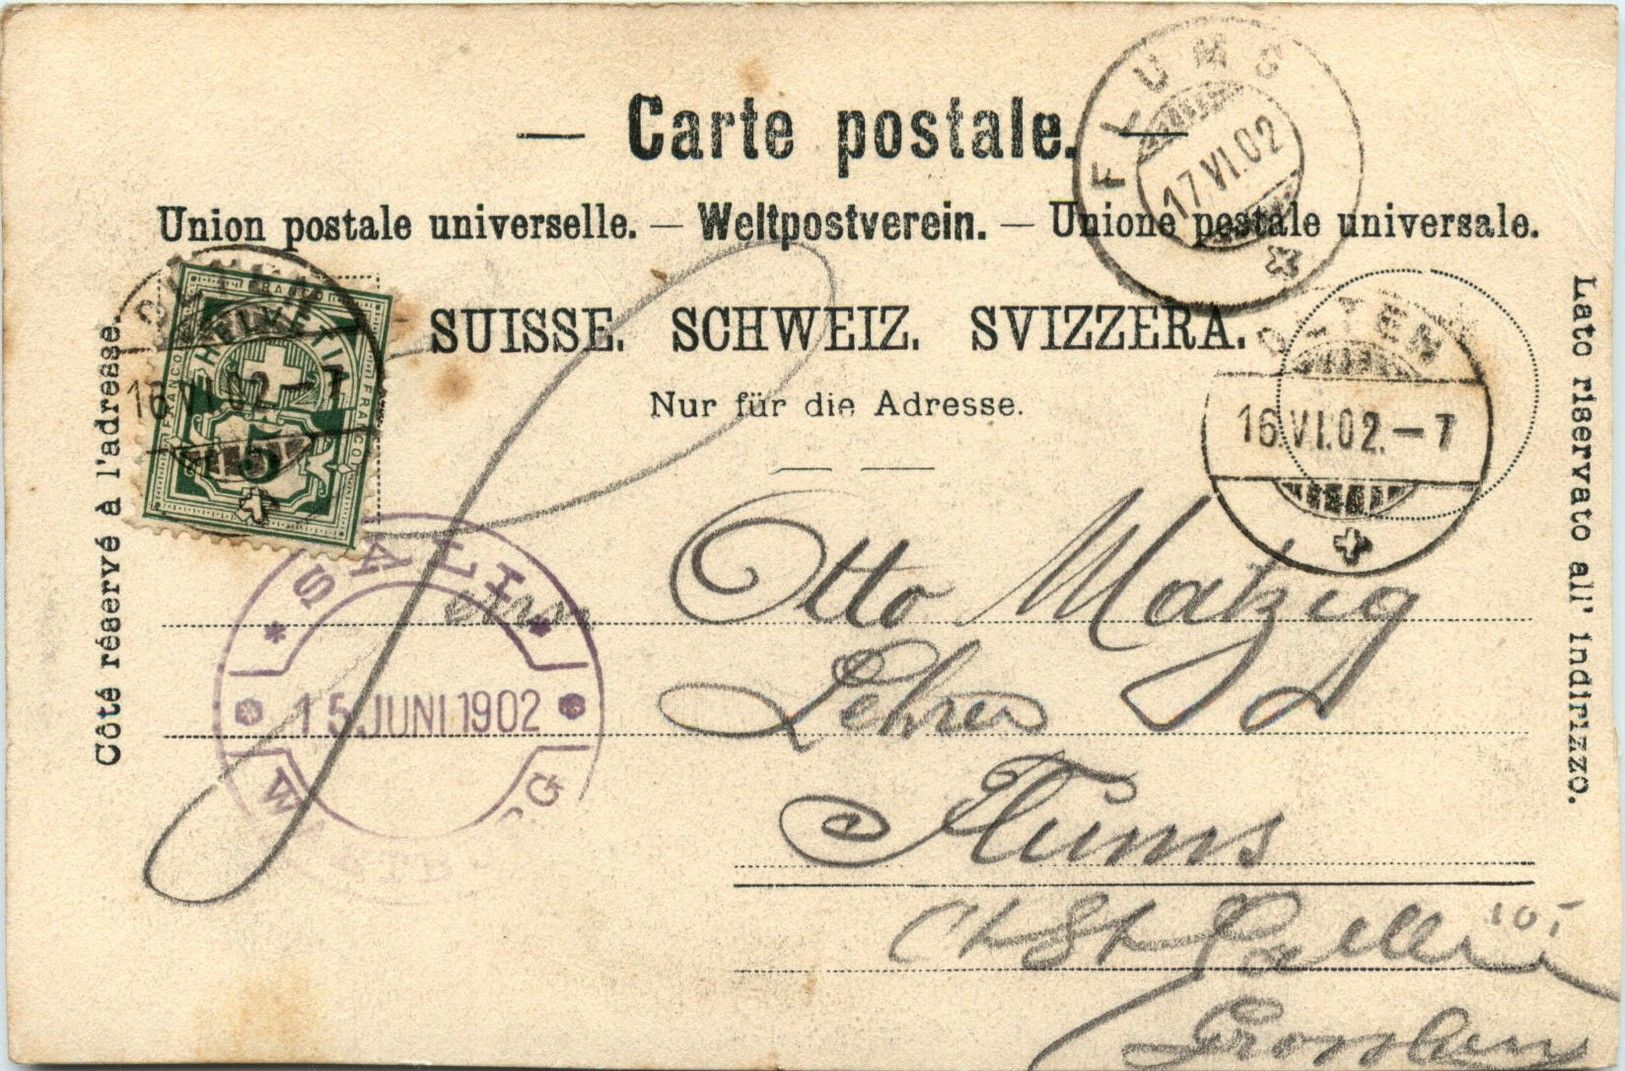 — Carte postale. —
Union postale universelle. — Weltpostverein. — Unione postale universale.
SUISSE. SCHWEIZ. SVIZZERA.
Nur für die Adresse.
Côté réservé à l'adresse.
Lato riservato all' indirizzo.
FLUMS
17 VI.02
OLTEN
16.VI.02.–7
HELVETIA
FRANCO
FRANCO
FRANCO
5
16 VI 02.–7
SALI
15.JUNI 1902
Otto Matzig
Lehrer
Flums
Ct St Gallen